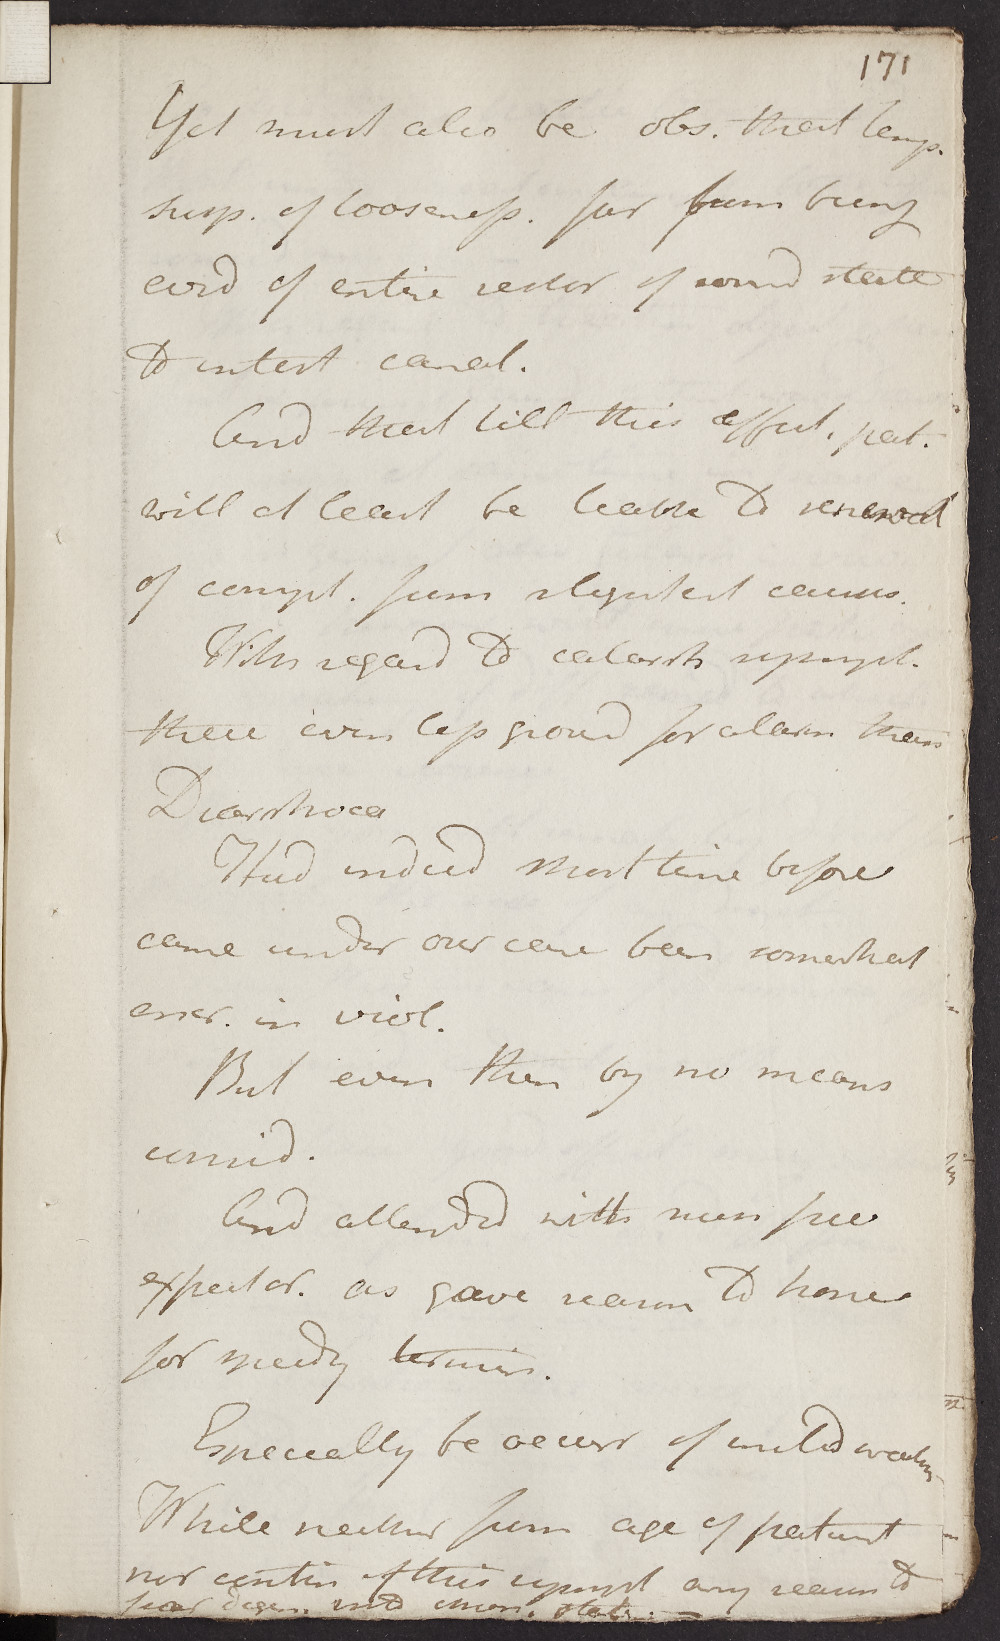 171
Yet must also be obs. that temp.
susp. of looseness. far from being
evid of entire restor of sound state
to intest canal.
And that till this effect. pat.
will at least be liable to renewal
of compl. from slightest causes.
With regard to catarrh sympt.
there even less ground for alarm than
Diarrhoea
Had indeed short time before
came under our care been somewhat
encr. in viol.
But even then by no means
unmid.
And attended with such free
expector. as gave reason to hope
for speedy termin.
Especially be occurr of mild weather
While neither from age of patient
nor contin of this sympt any reason to
fear degen. into chron. state. –